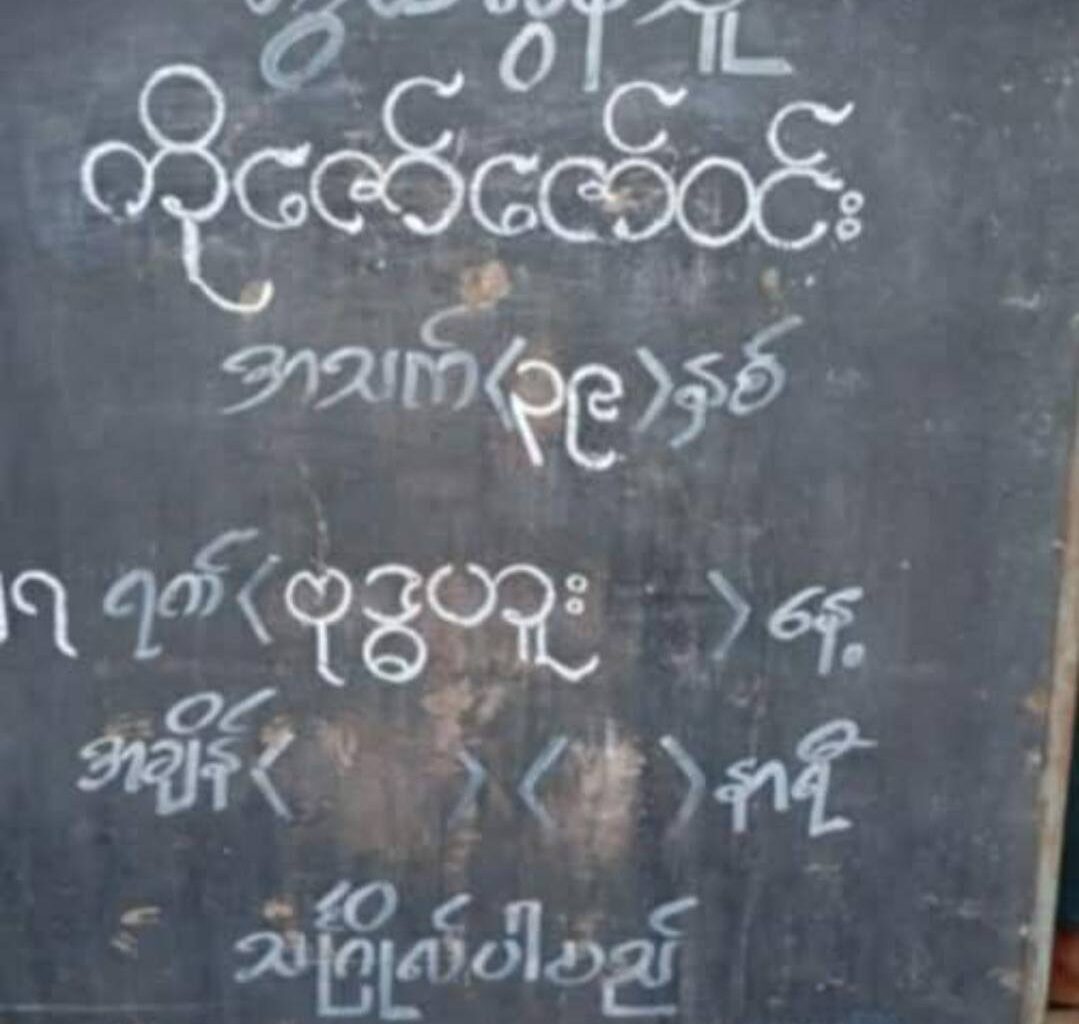 ကိုဇော်ဇော်ဝင်း
အသက်〈၃၉〉နှစ်
၇ ရက်〈ဗုဒ္ဓဟူး 〉နေ့
အချိန်〈 〉〈 〉နာရီ
သင်္ဂြိုလ်ပါမည်